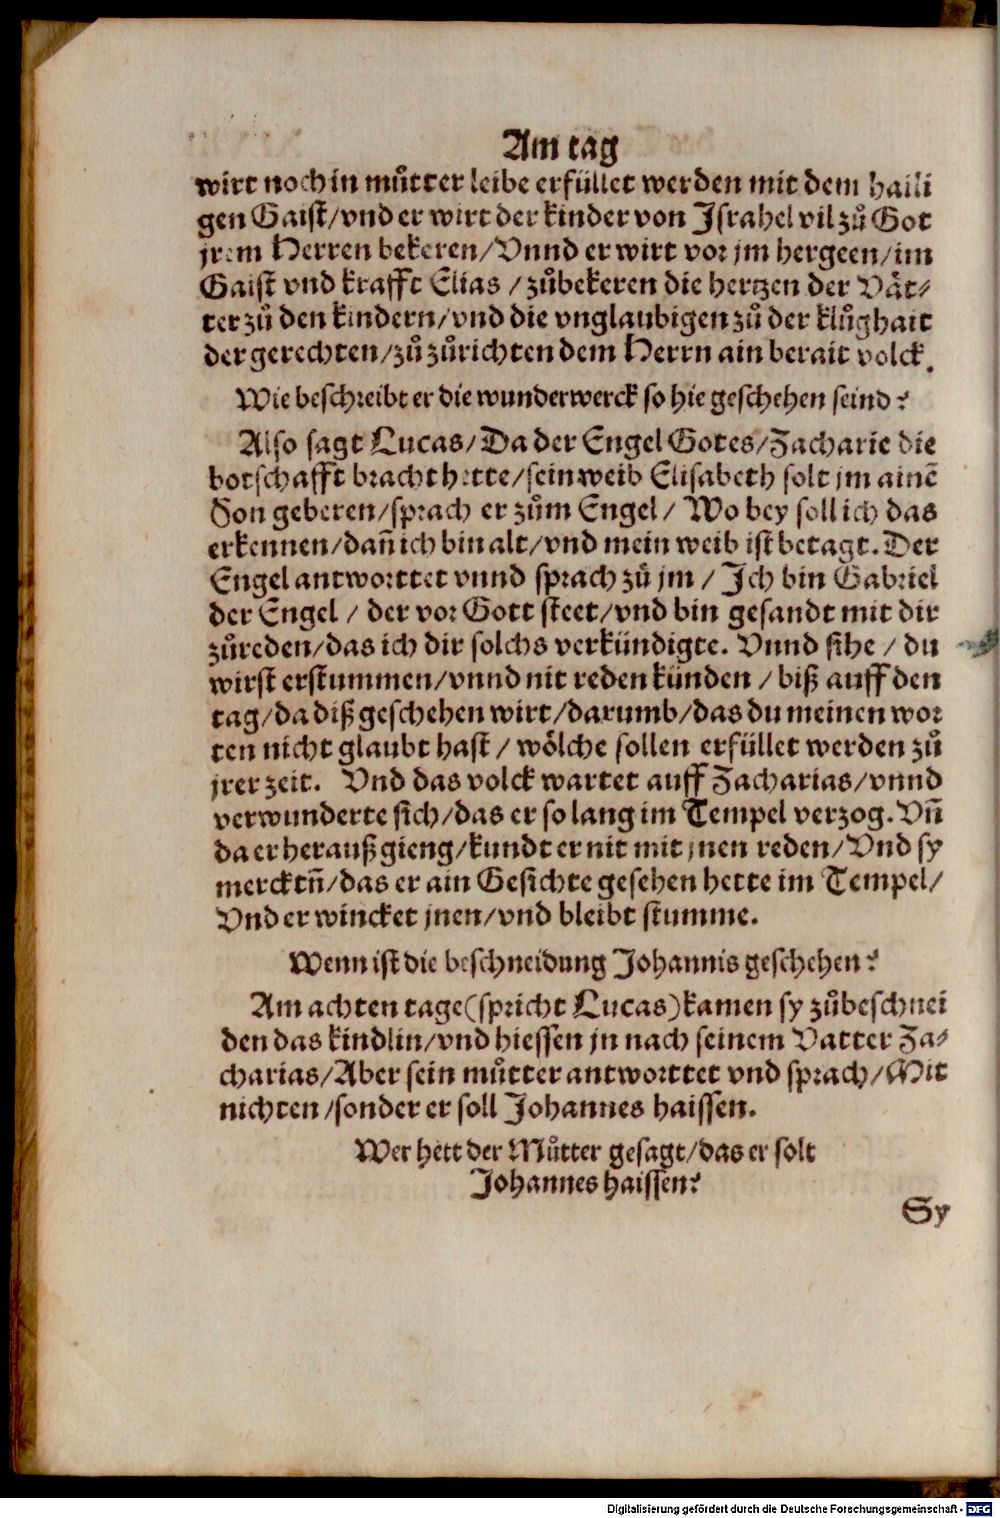 Am tag
wirt noch in můtter leibe erfüllet werden mit dem haili
gen Gaist/vnd er wirt der kinder von Israhel vil zů Got
jrem Herren bekeren/Vnnd er wirt vor jm hergeen/im
Gaist vnd krafft Elias / zůbekeren die hertzen der Vät⸗
ter zů den kindern/vnd die vnglaubigen zů der klůghait
der gerechten/zů zůrichten dem Herrn ain berait volck.
Wie beschreibt er die wunderwerck so hie geschehen seind?
Also sagt Lucas/Da der Engel Gotes/Zacharie die
botschafft bracht hette/sein weib Elisabeth solt jm ainẽ
Son geberen/sprach er zům Engel/ Wo bey soll ich das
erkennen/dañ ich bin alt/vnd mein weib ist betagt. Der
Engel antworttet vnnd sprach zů jm / Ich bin Gabriel
der Engel / der vor Gott steet/vnd bin gesandt mit dir
zůreden/das ich dir solchs verkündigte. Vnnd sihe / du
wirst erstummen/vnnd nit reden künden / biß auff den
tag/da diß geschehen wirt/darumb/das du meinen wor
ten nicht glaubt hast / wölche sollen erfüllet werden zů
jrer zeit. Vnd das volck wartet auff Zacharias/vnnd
verwunderte sich/das er so lang im Tempel verzog. Vñ
da er herauß gieng/kundt er nit mit jnen reden/Vnd sy
mercktñ/das er ain Gesichte gesehen hette im Tempel/
Vnd er wincket jnen/vnd bleibt stumme.
Wenn ist die beschneidung Johannis geschehen?
Am achten tage(spricht Lucas)kamen sy zůbeschnei
den das kindlin/vnd hiessen jn nach seinem Vatter Za⸗
charias/Aber sein můtter antworttet vnd sprach/Mit
nichten/sonder er soll Johannes haissen.
Wer hett der Můtter gesagt/das er solt
Johannes haissen?
Sy
Digitalisierung gefördert durch die Deutsche Forschungsgemeinschaft - DFG